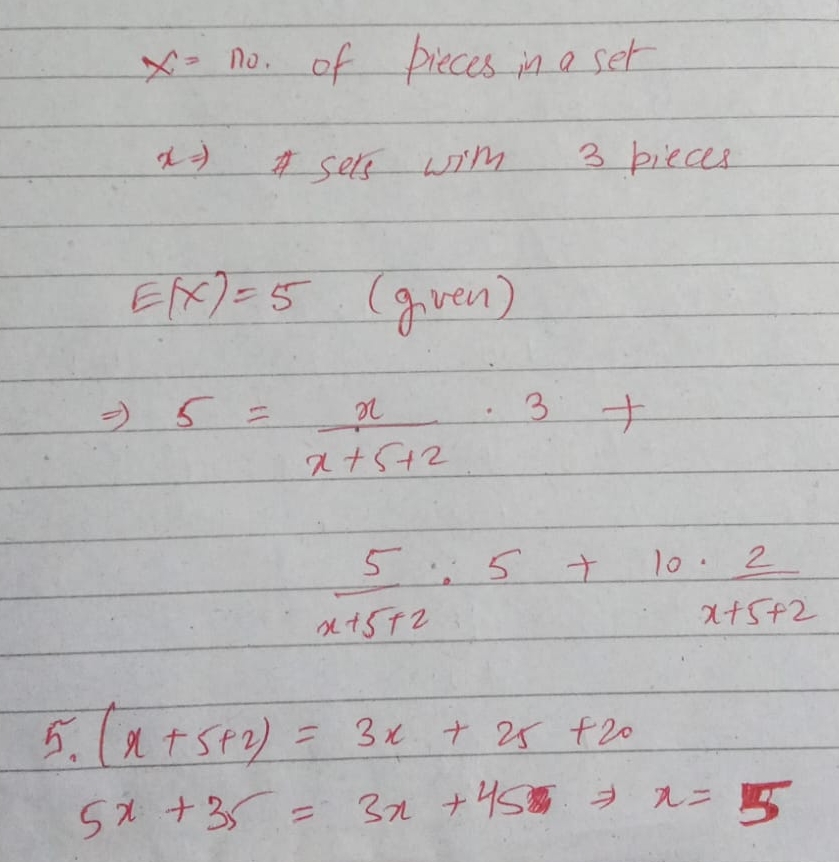 X = no. of pieces in a set
x ⇒ # sets with 3 pieces
E(X) = 5 (given)
⇒ 5 = x/(x+5+2) · 3 +
5/(x+5+2) · 5 + 10 · 2/(x+5+2)
5.(x+5+2) = 3x + 25 +20
5x +35 = 3x +45 ⇒ x = 5